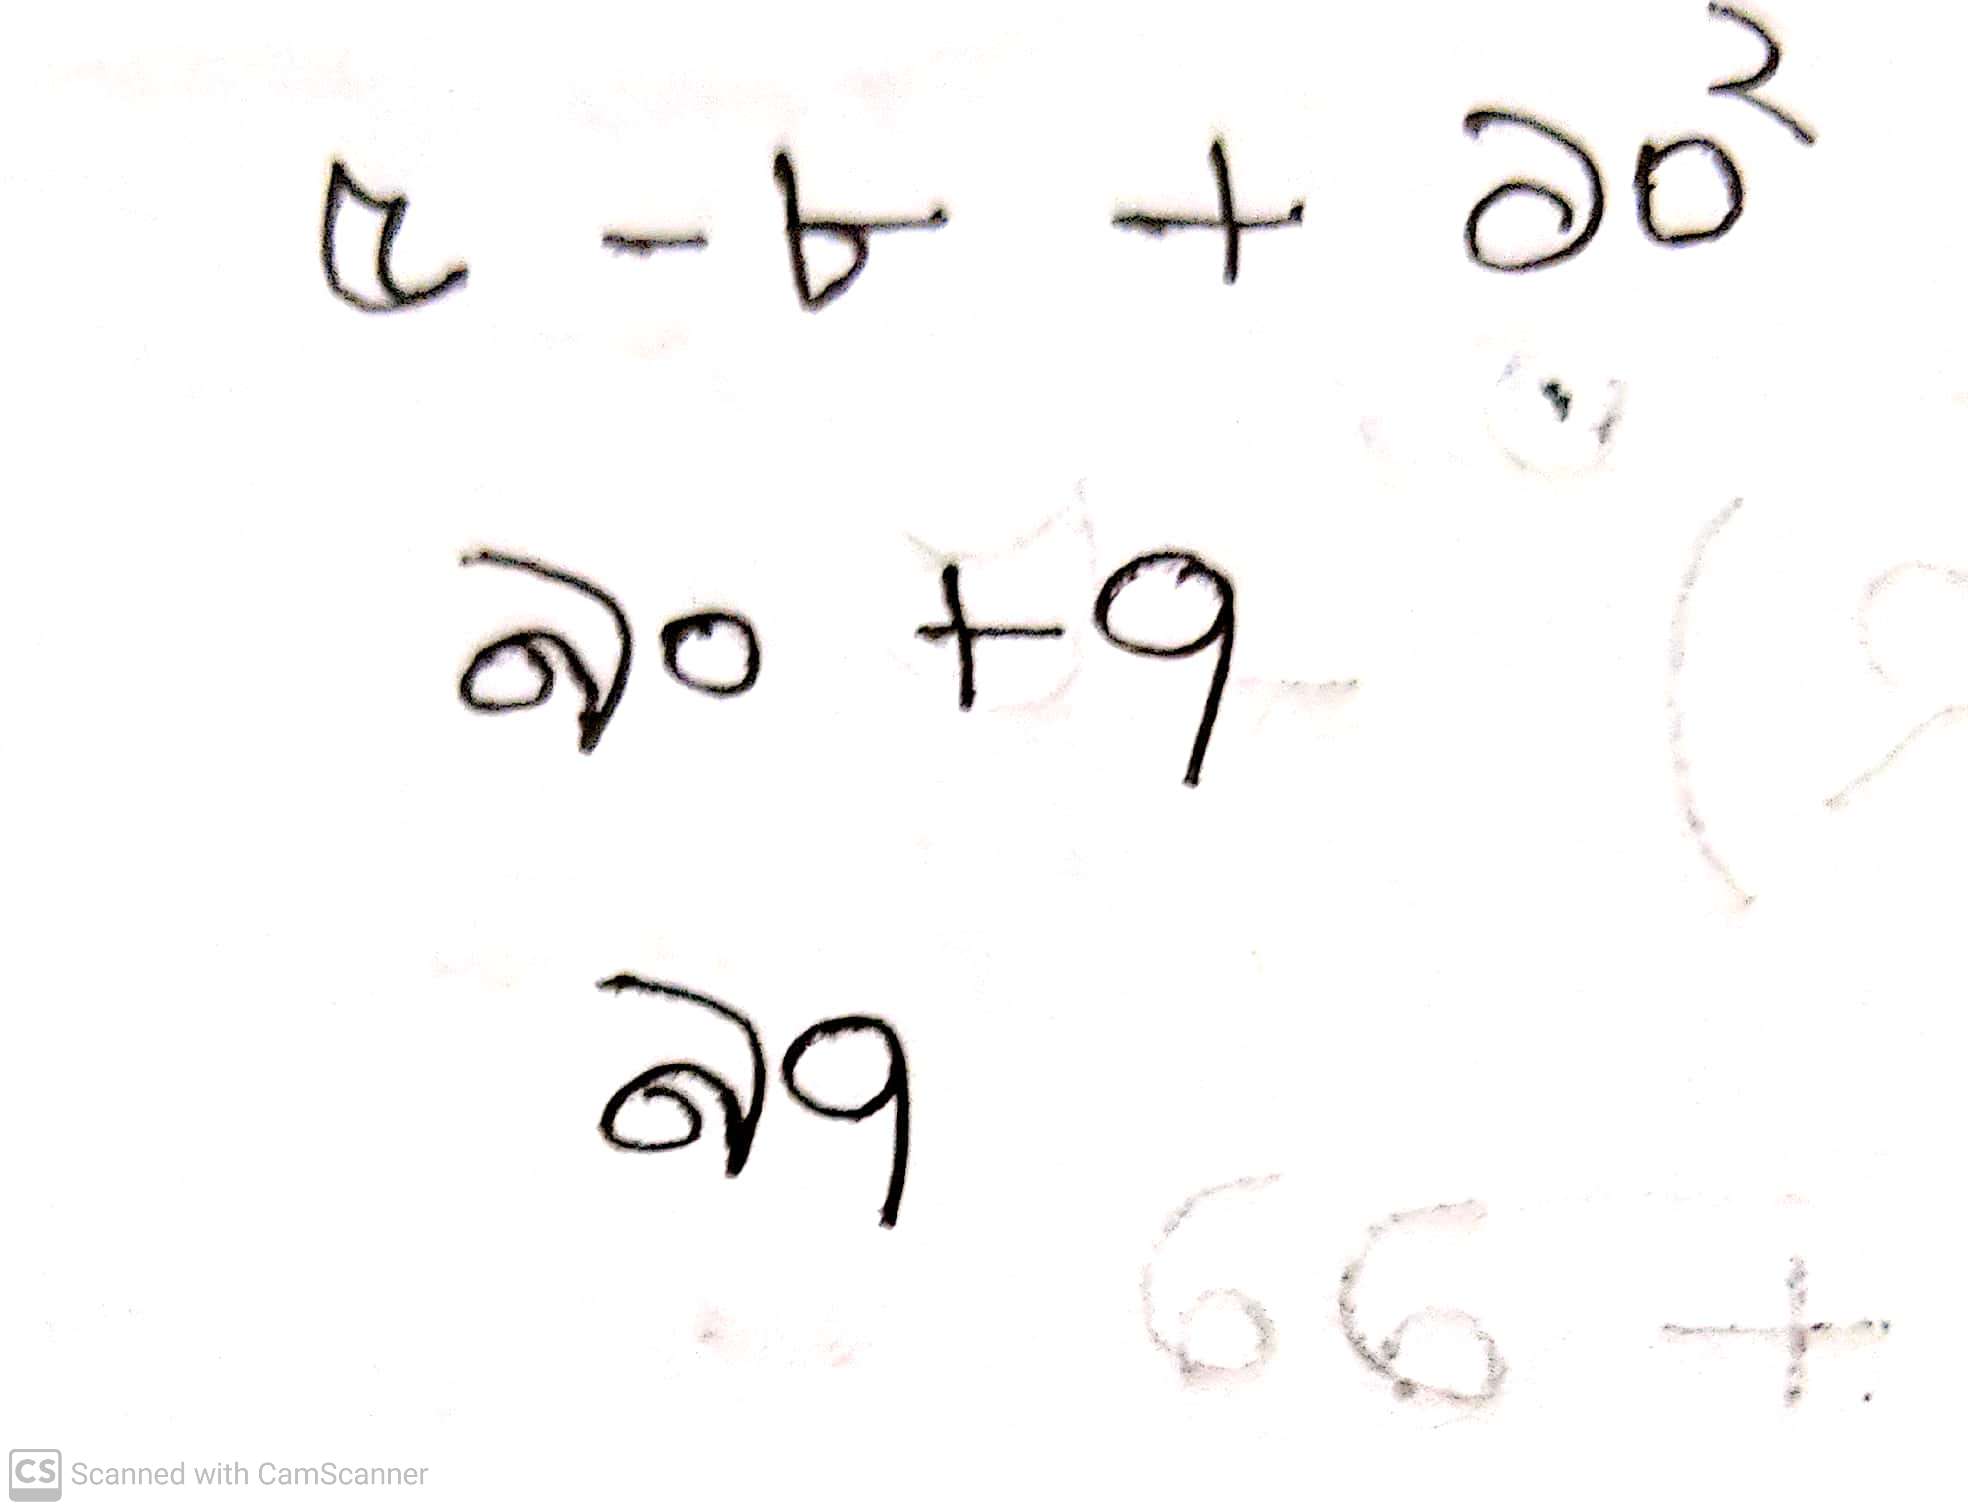 ৫ - ৮ + ১০²
৯০ + ৭
৯৭
CS Scanned with CamScanner